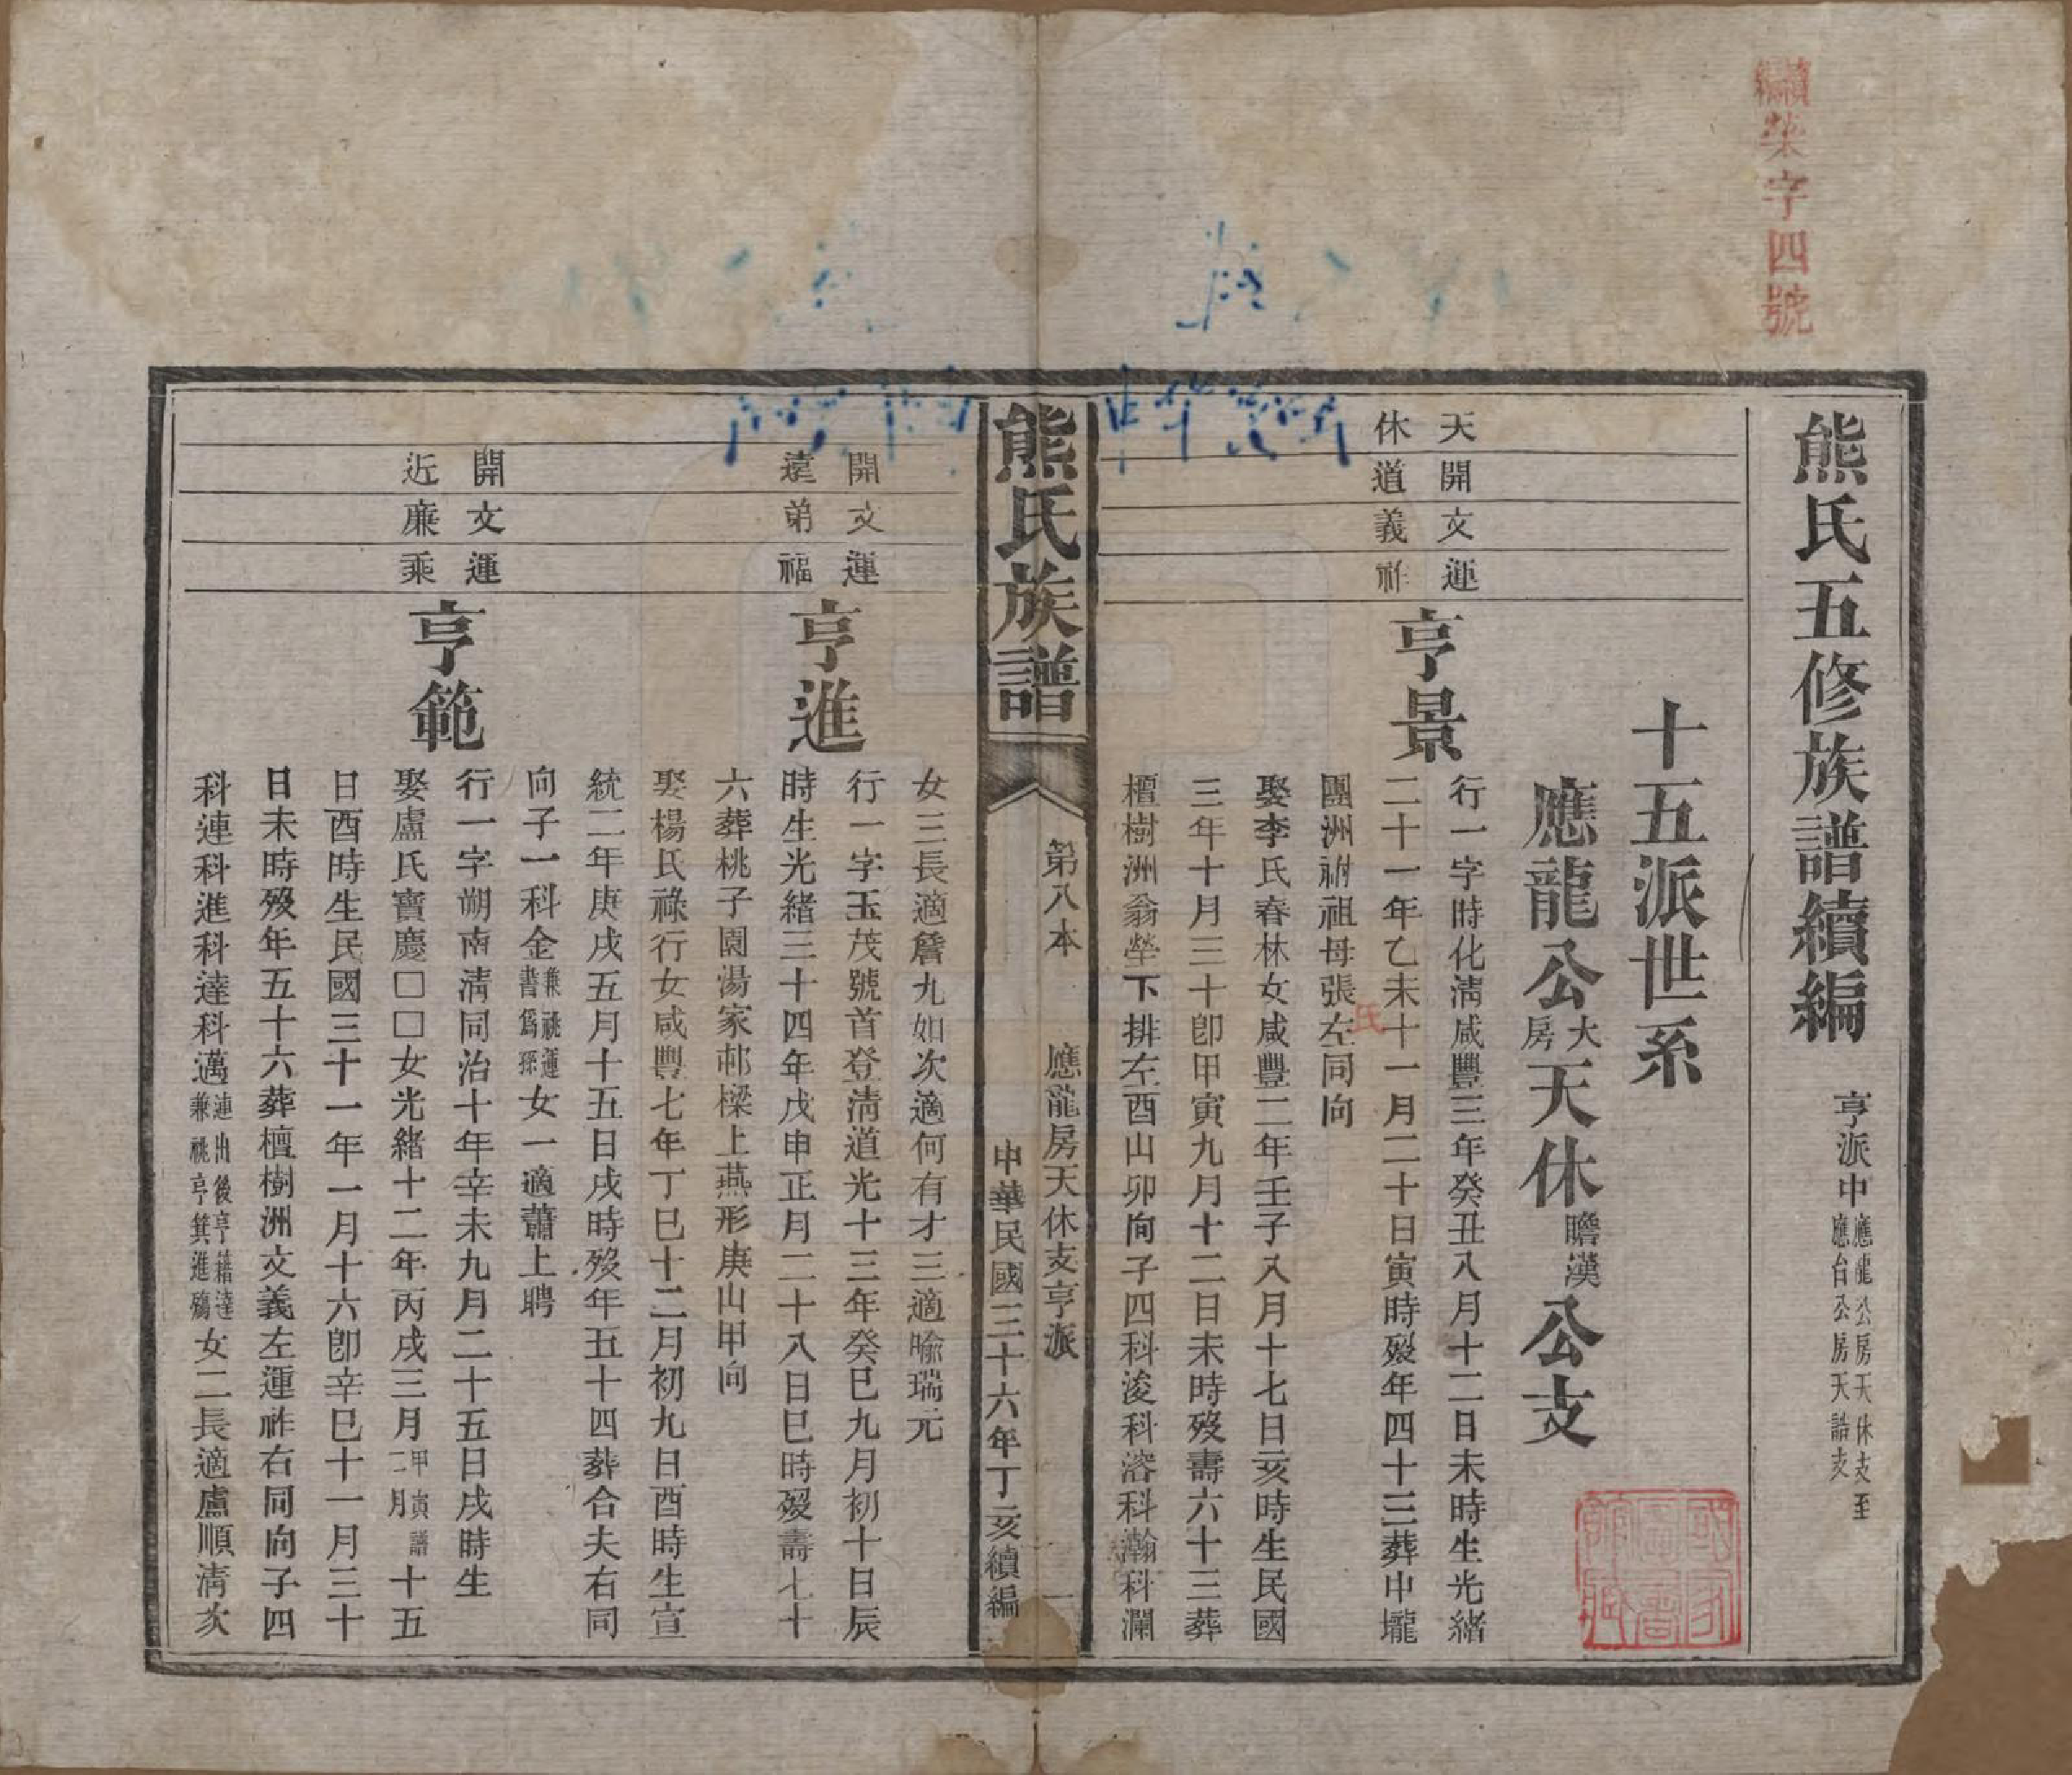 續編榮字四號
熊氏五修族譜續編 亨派中應龍公房天休支至應台公房天誥支
十五派世系
應龍公大房天休瞻漢公支
天開文運
休道義祚
亨景
行一字時化淸咸豐三年癸丑八月十二日未時生光緒
二十一年乙未十一月二十日寅時歿年四十三葬中壠
團洲祔祖母張氏左同向
娶李氏春林女咸豐二年壬子八月十七日亥時生民國
三年十月三十卽甲寅九月十二日未時歿壽六十三葬
檀樹洲翁塋下排左酉山卯向子四科浚科溶科瀚科瀾
熊氏族譜
第八本 應龍房天休支亨派 一
中華民國三十六年丁亥續編
女三長適詹九如次適何有才三適喩瑞元
開文運
遠弟福
亨進
行一字玉茂號首登淸道光十三年癸巳九月初十日辰
時生光緒三十四年戊申正月二十八日巳時歿壽七十
六葬桃子園湯家邨樑上燕形庚山甲向
娶楊氏祿行女咸豐七年丁巳十二月初九日酉時生宣
統二年庚戌五月十五日戌時歿年五十四葬合夫右同
向子一科金兼祧運書爲孫女一適蕭上聘
開文運
近廉乘
亨範
行一字朔南淸同治十年辛未九月二十五日戌時生
娶盧氏寶慶□□女光緒十二年丙戌三月甲寅譜二月十五
日酉時生民國三十一年一月十六卽辛巳十一月三十
日未時歿年五十六葬檀樹洲文義左運祚右同向子四
科連科進科達科邁連出後亨籍達兼祧亨箕進殤女二長適盧順淸次
國家圖書館藏